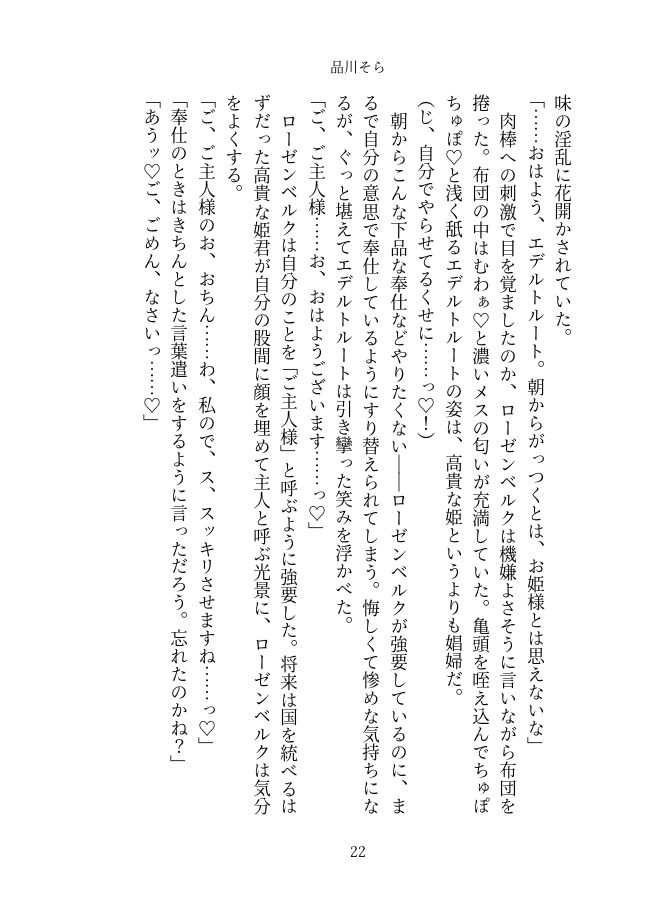 品川そら
味の淫乱に花開かされていた。
「……おはよう、エデルトルート。朝からがっつくとは、お姫様とは思えないな」
肉棒への刺激で目を覚ましたのか、ローゼンベルクは機嫌よさそうに言いながら布団を
捲った。布団の中はむわぁ♡と濃いメスの匂いが充満していた。亀頭を咥え込んでちゅぽ
ちゅぽ♡と浅く舐るエデルトルートの姿は、高貴な姫というよりも娼婦だ。
(じ、自分でやらせてるくせに……っ♡！)
朝からこんな下品な奉仕などやりたくない――ローゼンベルクが強要しているのに、ま
るで自分の意思で奉仕しているようにすり替えられてしまう。悔しくて惨めな気持ちにな
るが、ぐっと堪えてエデルトルートは引き攣った笑みを浮かべた。
「ご、ご主人様……お、おはようございます……っ♡」
ローゼンベルクは自分のことを「ご主人様」と呼ぶように強要した。将来は国を統べるは
ずだった高貴な姫君が自分の股間に顔を埋めて主人と呼ぶ光景に、ローゼンベルクは気分
をよくする。
「ご、ご主人様のお、おちん……わ、私ので、ス、スッキリさせますね……っ♡」
「奉仕のときはきちんとした言葉遣いをするように言っただろう。忘れたのかね？」
「あうッ♡ご、ごめん、なさいっ……♡」
22